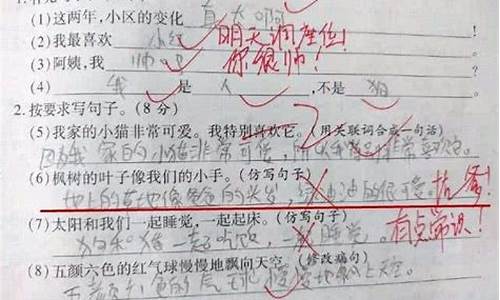 (1)这两年,小区的变化 真大啊
(2)我最喜欢 小红 明天调座位!
(3)阿姨,我 帅吧 你很帅!
(4) 我 是 人 ,不是 狗
2. 按要求写句子。(8 分)
(5)我家的小猫非常可爱。我特别喜欢它。(用关联词合成一句话)
因为我家的小猫非常可爱,所以我非常喜欢它。
(6)枫树的叶子像我们的小手。(仿写句子)
地上的草地像爸爸的头发,绿油油的很可爱。
(7)太阳和我们一起睡觉,一起起床。(仿写句子)
狗和猪一起吃饭,一起睡觉。 有点常识!
(8)五颜六色的红气球慢慢地飘向天空。(修改病句)
五颜六色的气球慢慢地飘上天空。